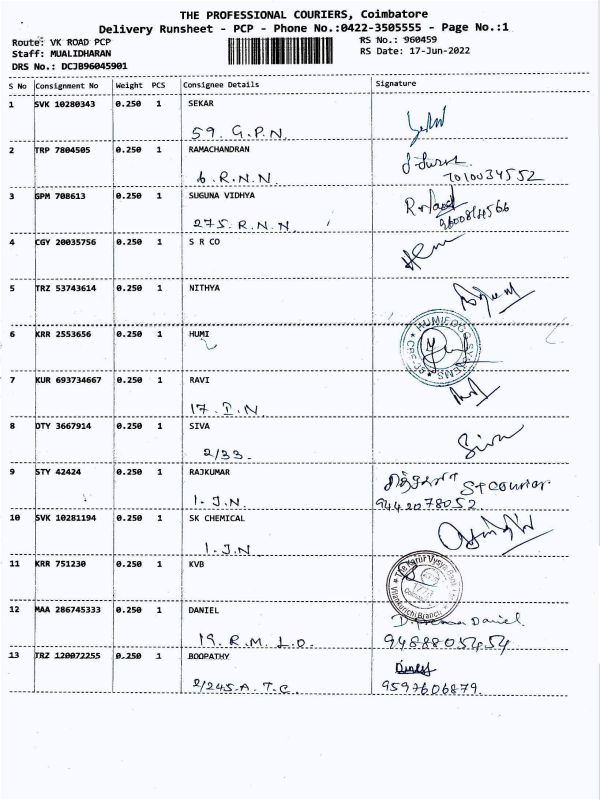 THE PROFESSIONAL COURIERS, Coimbatore
Delivery Runsheet - PCP - Phone No.:0422-3505555 - Page No.:1
Route: VK ROAD PCP
RS No.: 960459
Staff: MUALIDHARAN
RS Date: 17-Jun-2022
DRS No.: DCJB96045901
S No Consignment No Weight PCS Consignee Details Signature
1 SVK 10280343 0.250 1 SEKAR
59. G.P.N.
2 TRP 7804505 0.250 1 RAMACHANDRAN
6. R.N.N. 7010034552
3 GPM 708613 0.250 1 SUGUNA VIDHYA
275. R.N.N.
4 CGY 20035756 0.250 1 S R CO
5 TRZ 53743614 0.250 1 NITHYA
6 KRR 2553656 0.250 1 HUMI
7 KUR 693734667 0.250 1 RAVI
17. I.N.
8 OTY 3667914 0.250 1 SIVA
2/33. Siva
9 STY 42424 0.250 1 RAJKUMAR
ST Courier
1. J.N. 9442078052
10 SVK 10281194 0.250 1 SK CHEMICAL
1. J.N
11 KRR 751230 0.250 1 KVB
The Karur Vysya Bank
12 MAA 286745333 0.250 1 DANIEL
D. Prema Daniel
19. R.M.L.O. 9488805454
13 TRZ 120072255 0.250 1 BOOPATHY
2/245.A. T.C. 9597606879.